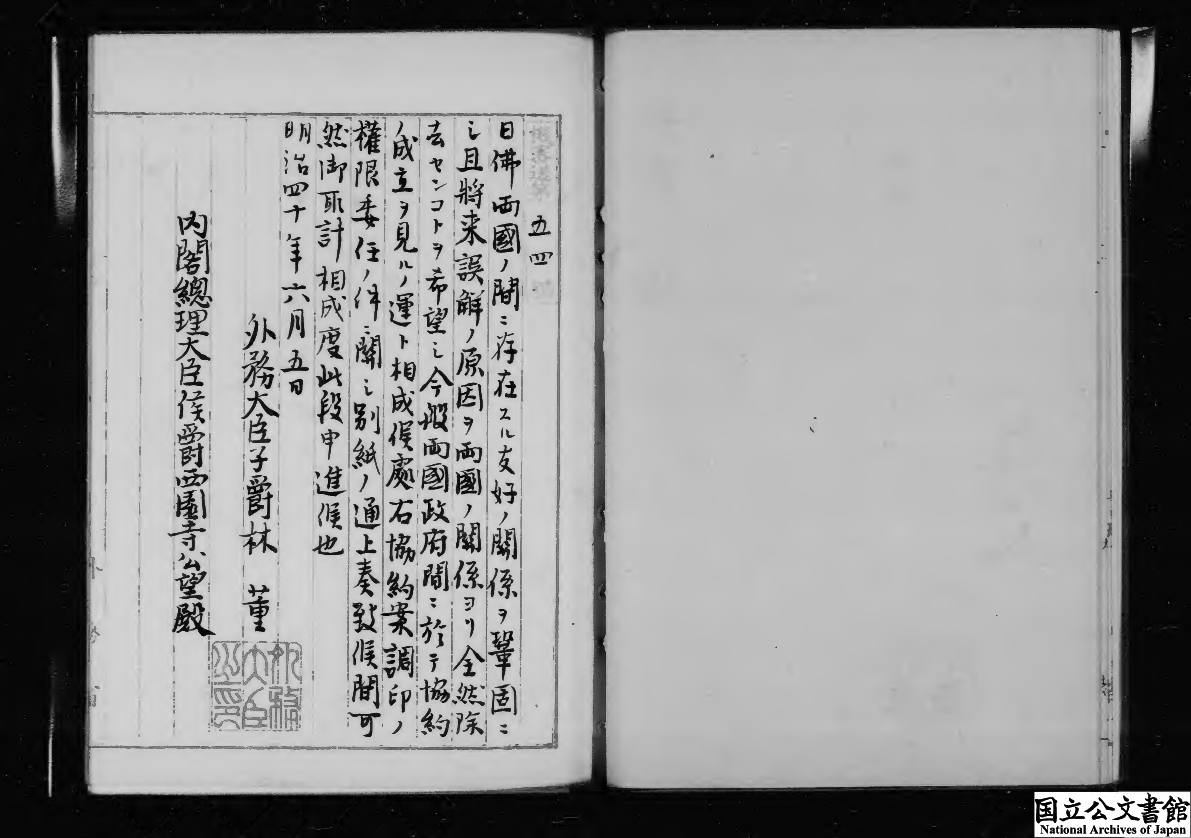 機密送第五四號
日佛兩國ノ間ニ存在スル友好ノ關係ヲ鞏固ニ
シ且將来誤解ノ原因ヲ兩國ノ關係ヨリ全然除
去センコトヲ希望シ今般兩國政府間ニ於テ協約
ノ成立ヲ見ルノ運ト相成候處右協約案調印ノ
權限委任ノ件ニ關シ別紙ノ通上奏致候間可
然御取計相成度此段申進候也
明治四十年六月五日
外務大臣子爵林 董
外務大臣之印
内閣總理大臣侯爵西園寺公望殿
外務省
国立公文書館
National Archives of Japan